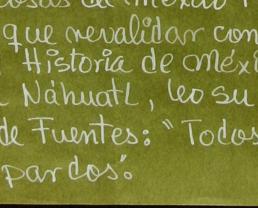 cosas de México
que revalidar con
Historia de Méxi
Náhuatl, leo su
de Fuentes: "Todos
pardos".